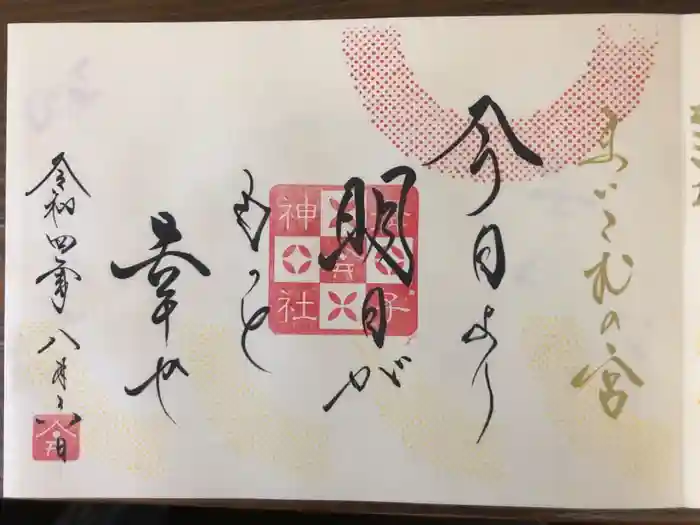 まいこ札の宮
今日より
明日が
もっと
幸せ
令和四年八月六日
子
神社